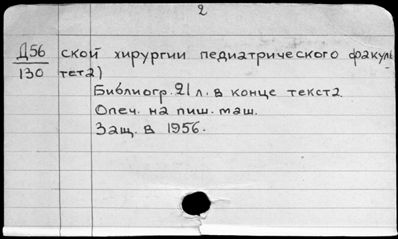 2
Д56 ской хирургии педиатрического факуль
130 тета)
Библиогр. 21 л. в конце текста.
Опеч. на пиш. маш.
Защ. в 1956.